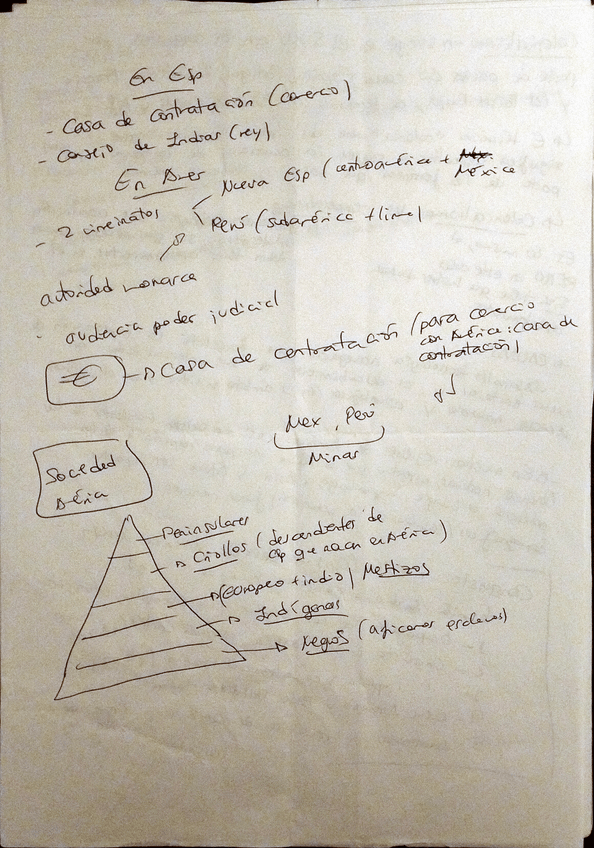 En Esp
- Casa de contratación (comercio)
- Consejo de Indias (rey)
En Amer
- 2 virreinatos
Nueva Esp (centroamérica + México
Perú (sudamérica + lima)
autoridad monarca
- audiencia poder judicial
€ → Casa de contratación (para comercio
con América: casa de
contratación)
Mex, Perú
Minas
Sociedad
América
Peninsulares
Criollos (descendientes de
esp que nacen en América)
(europeo + indio) Mestizos
Indígenas
Negros (africanos esclavos)